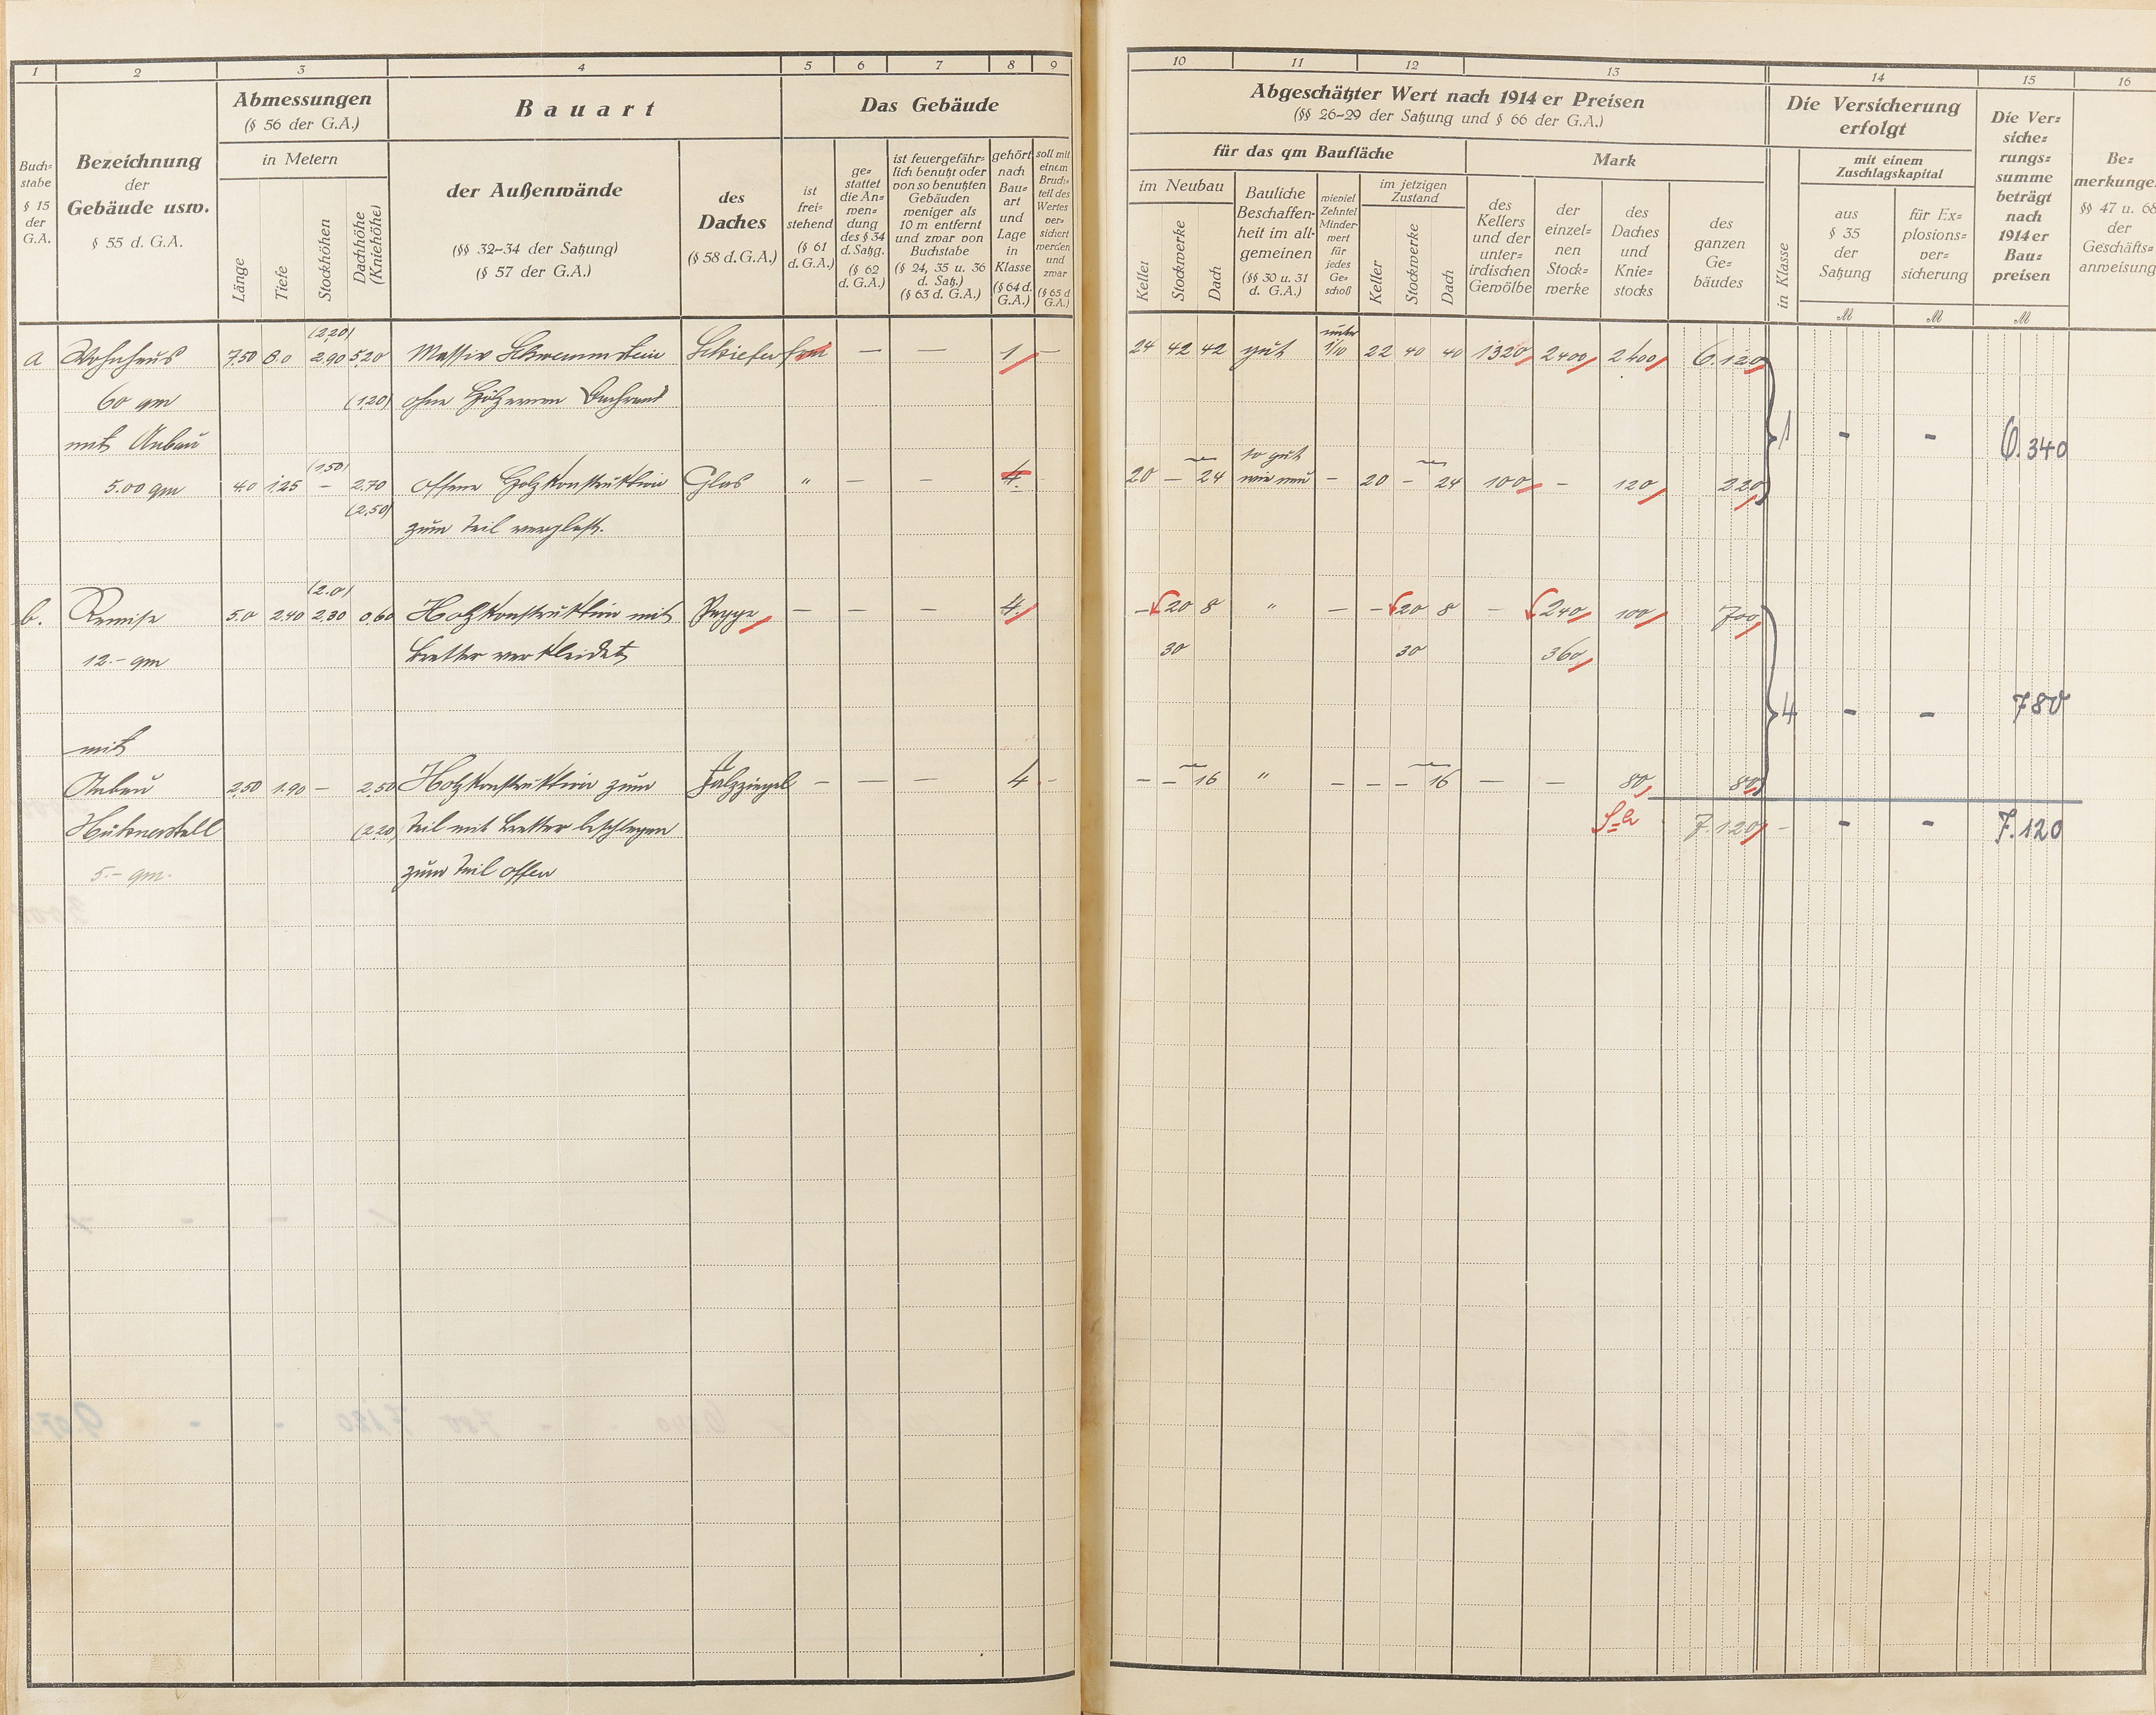 1 2 3 4 5 6 7 8 9
Buch=
stabe
§ 15
der
G.A.
Bezeichnung
der
Gebäude usw.
§ 55 d. G.A.
Abmessungen
(§ 56 der G.A.)
in Metern
Länge
Tiefe
Stockhöhen
Dachhöhe
(Kniehöhe)
Bauart
der Außenwände
(§§ 32–34 der Satzung)
(§ 57 der G.A.)
des
Daches
(§ 58 d. G.A.)
Das Gebäude
ist
frei=
stehend
(§ 61
d. G.A.)
ge=
stattet
die An=
wen=
dung
des § 34
d. Satzg.
(§ 62
d. G.A.)
ist feuergefähr=
lich benutzt oder
von so benutzten
Gebäuden
weniger als
10 m entfernt
und zwar von
Buchstabe
(§ 24, 35 u. 36
d. Satz.)
(§ 63 d. G.A.)
gehört
nach
Bau=
art
und
Lage
in
Klasse
(§ 64 d.
G.A.)
soll mit
einem
Bruch=
teil des
Wertes
ver=
sichert
werden
und
zwar
(§ 65 d
G.A.)
(2.20)
a Wohnhaus 7.50 8.0 2.90 5.20 Massiv Schwemmstein Schiefer frei — — 1 —
60 qm (1.20) ohne
mit Anbau
(1.50)
5.00 qm 4.0 1.25 – 2.70 offene Holzkonstruktion Glas " – – 4.
(2.50)
zum Teil verglast.
(2.0)
b. Remise 5.0 2.40 2.30 0.60 Holzkonstruktion mit Pappe — — — 4.
12.– qm Bretter verkleidet
mit
Anbau 2.50 1.90 — 2.50 Holzkonstruktion zum Falzziegel – — — 4 -
Hühnerstall (2.20) Teil mit Bretter beschlagen
5.– qm. zum Teil offen
10 11 12 13 14 15 16
Abgeschätzter Wert nach 1914 er Preisen
(§§ 26–29 der Satzung und § 66 der G.A.)
für das qm Baufläche
im Neubau
Keller
Stockwerke
Dach
Bauliche
Beschaffen=
heit im all=
gemeinen
(§§ 30 u. 31
d. G.A.)
wieviel
Zehntel
Minder=
wert
für
jedes
Ge=
schoß
im jetzigen
Zustand
Keller
Stockwerke
Dach
Mark
des
Kellers
und der
unter=
irdischen
Gewölbe
der
einzel=
nen
Stock=
werke
des
Daches
und
Knie=
stocks
des
ganzen
Ge=
bäudes
Die Versicherung
erfolgt
in Klasse
mit einem
Zuschlagskapital
aus
§ 35
der
Satzung
für Ex=
plosions=
ver=
sicherung
Die Ver=
siche=
rungs=
summe
beträgt
nach
1914 er
Bau=
preisen
Be=
merkunge
§§ 47 u. 68
der
Geschäfts=
anweisung
M M M
unter
24 42 42 gut 1/10 22 40 40 1320 2400 2400 6.120
1 – – 6.340
so gut
20 — 24 wie neu – 20 – 24 100 – 120 220
– 20 8 " — – 20 8 – 240 100 700
30 30 360
4 – – 780
– – 16 " – – – 16 — — 80 80
Sa 7.120 – – – 7.120